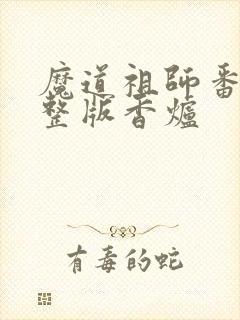 魔道祖師番
整版香爐
有毒的蛇